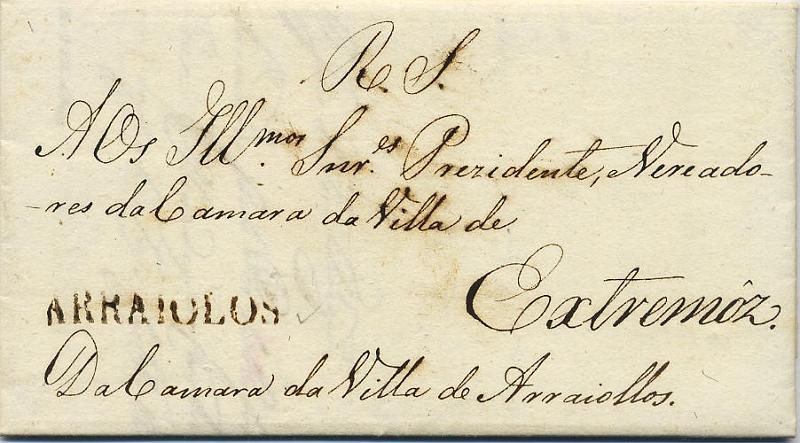 R. S.
AOs Illmos. Snr.es Prezidente, Vereado-
-res da Camara da Villa de
Extremôz.
ARRAIOLOS
Da Camara da Villa de Arraiollos.